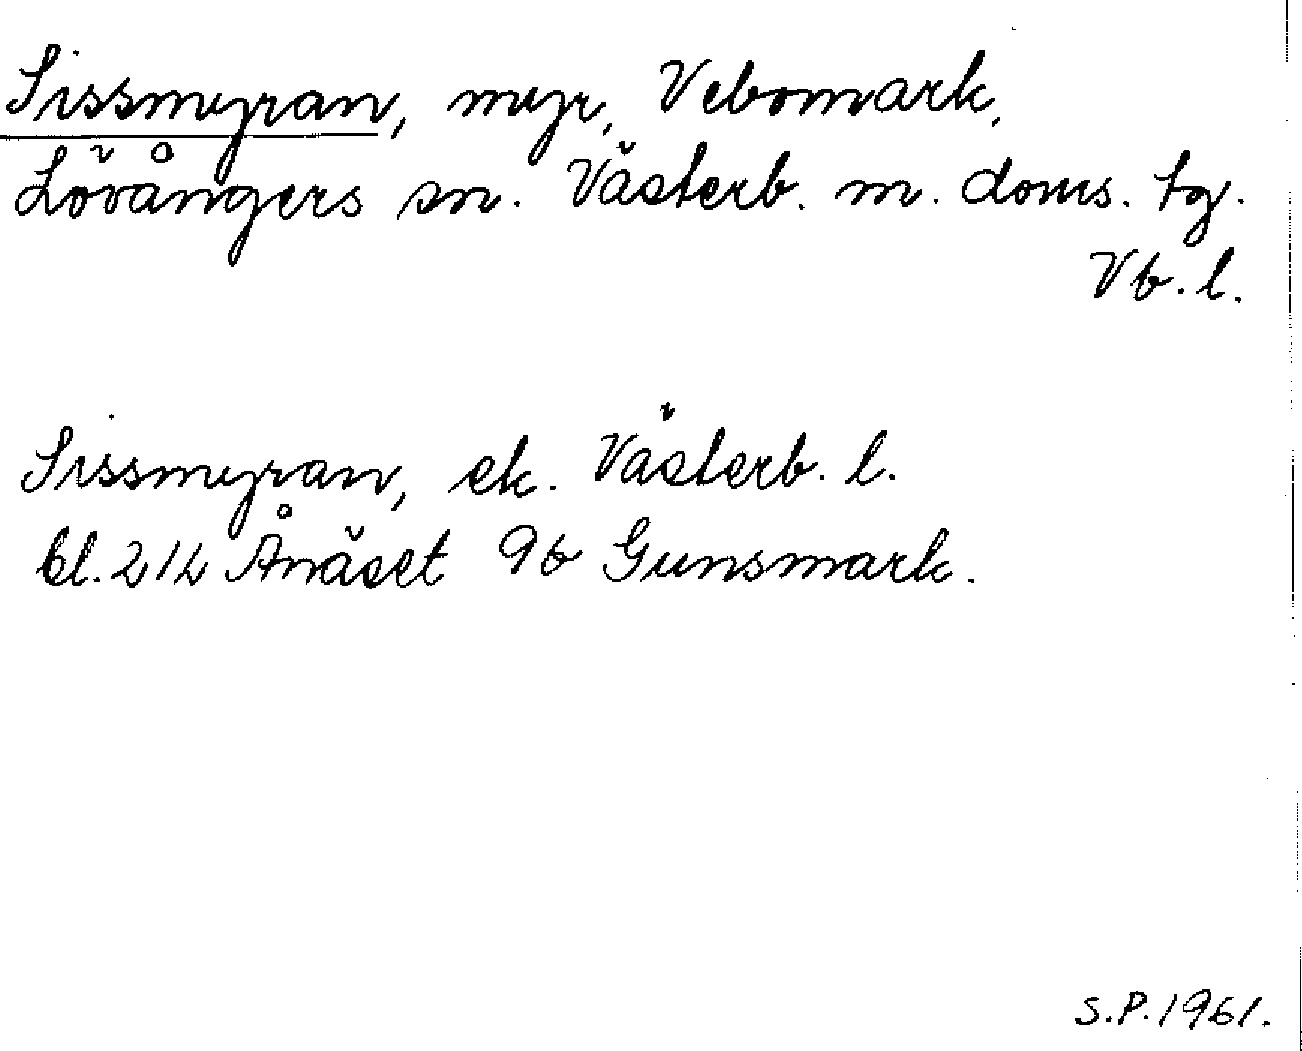 Sissmyran, myr, Vebomark,
Lövångers sn. Västerb. m. doms. tg.
Vb. l.
Sissmyran, ek. Västerb. l.
bl. 212 Ånäset 9b Gunsmark.
S.P. 1961.